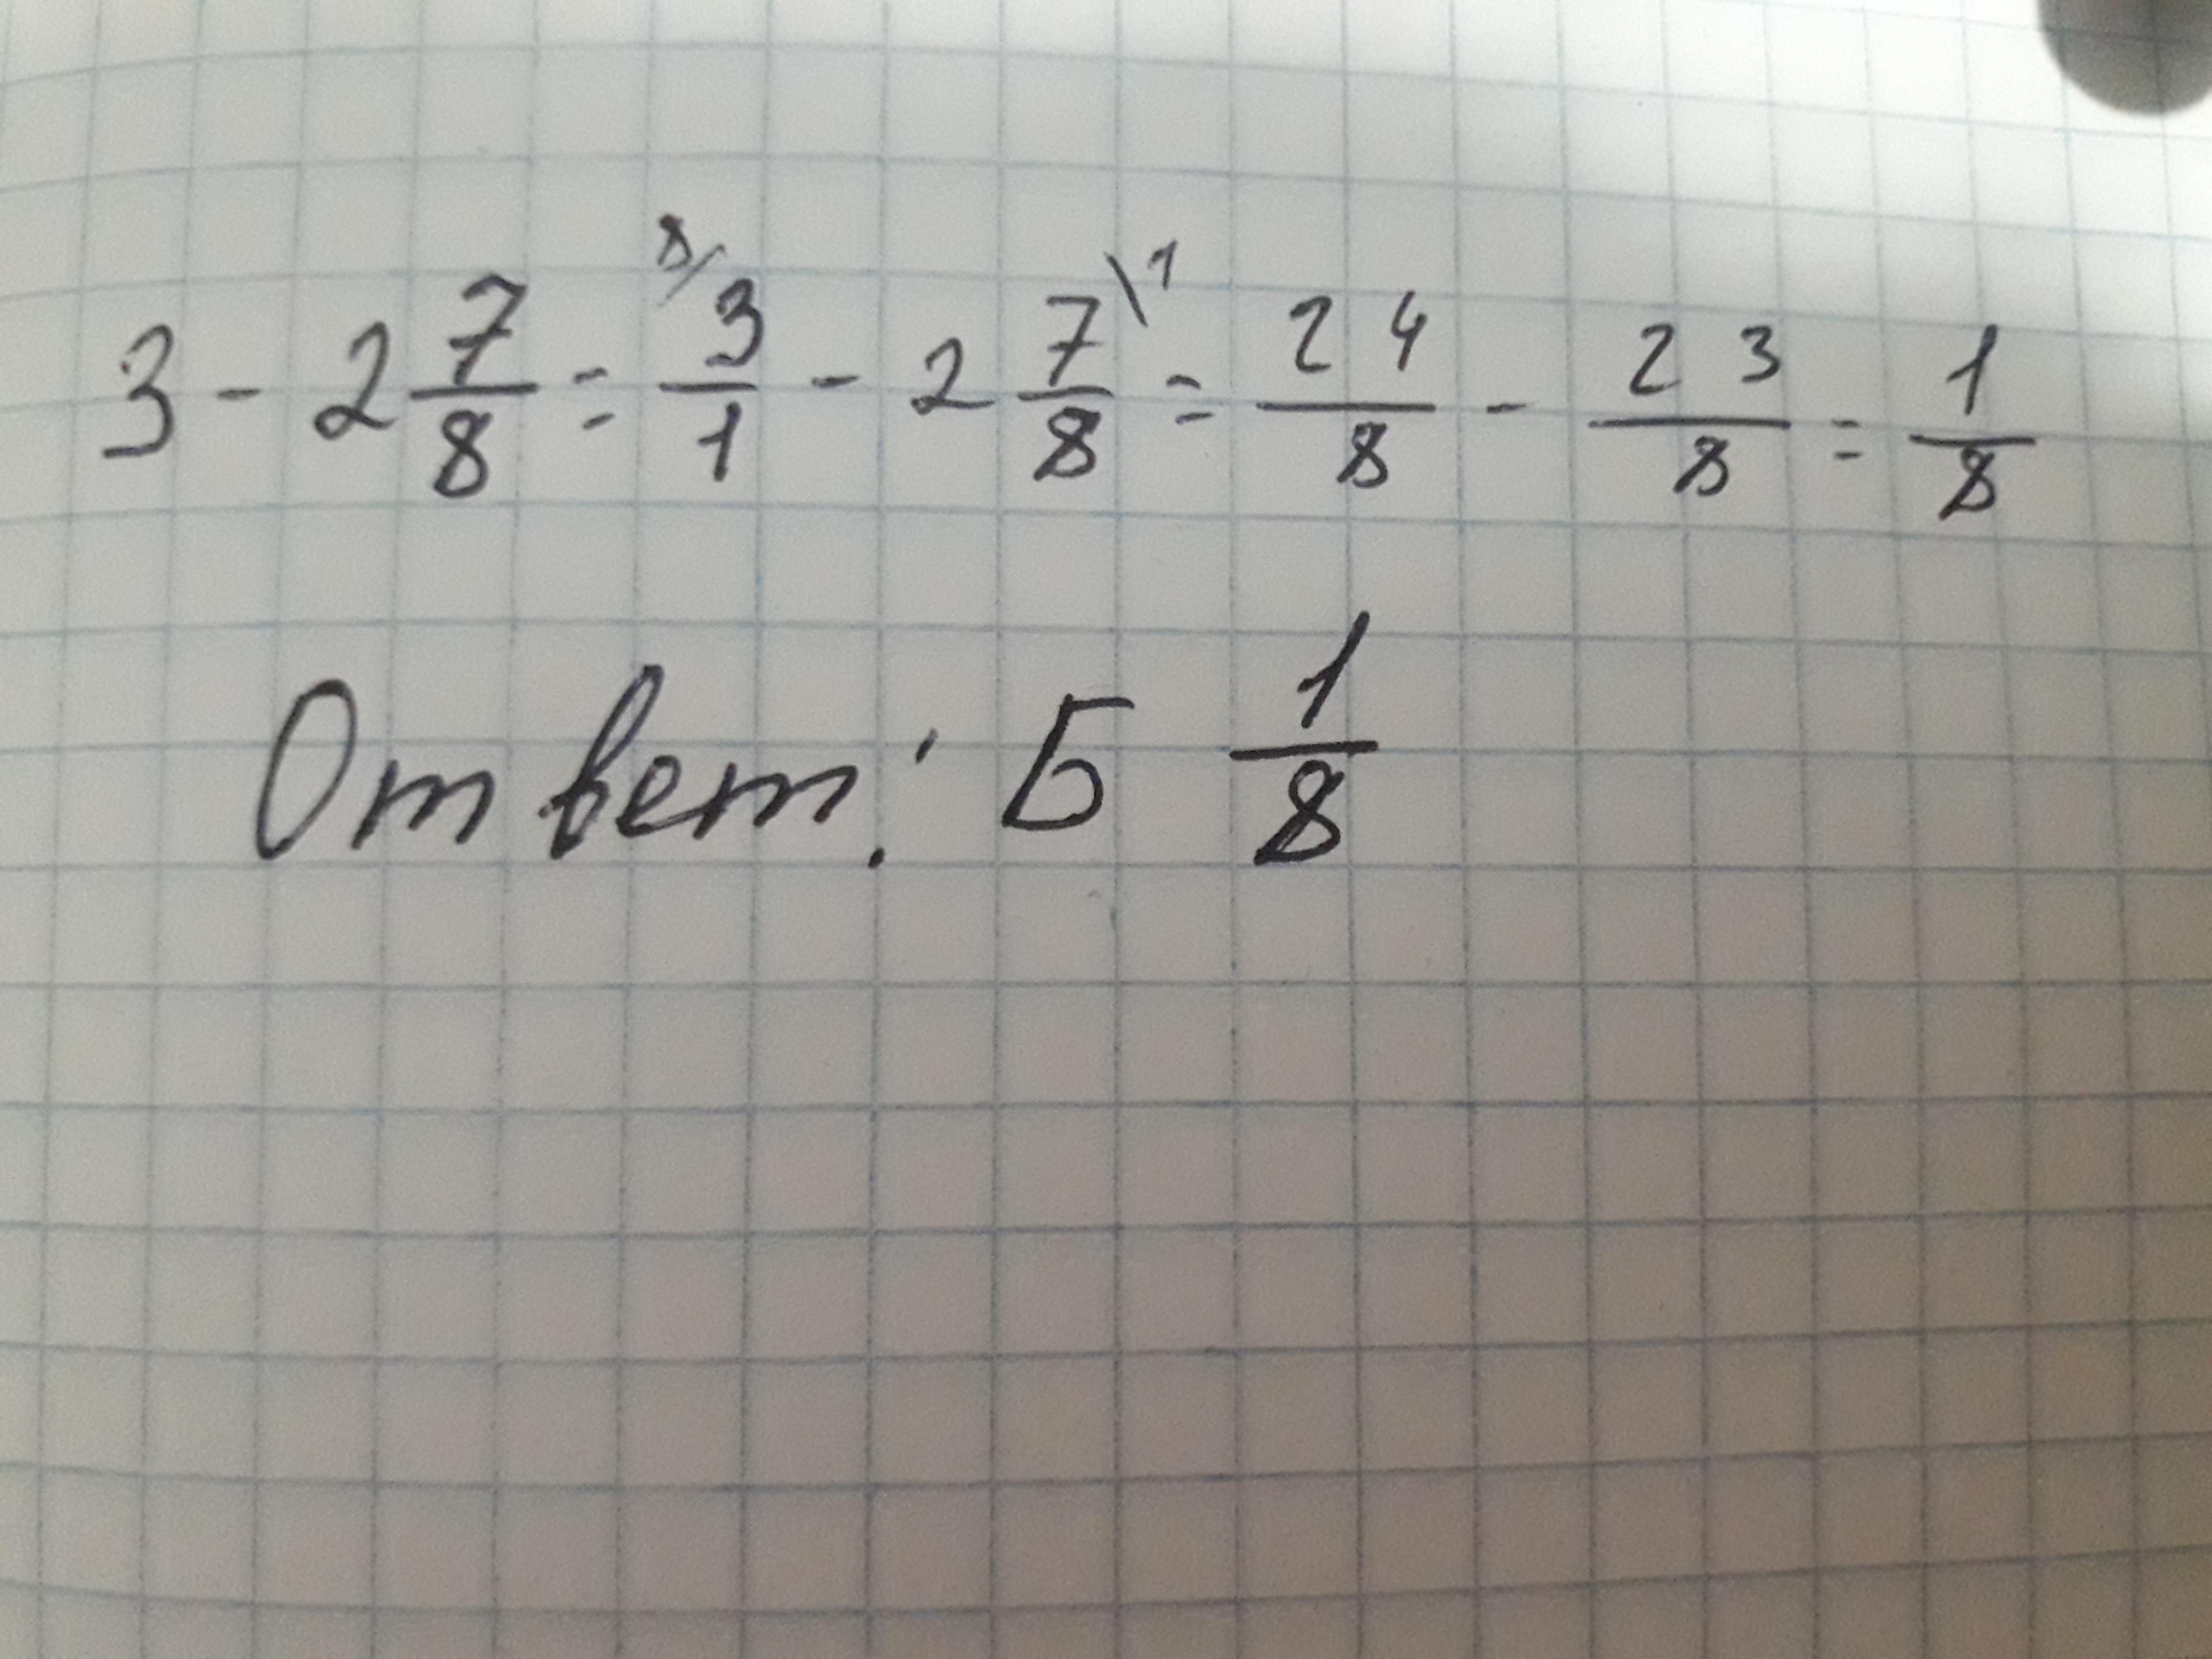 3 - 2 7/8 = 8/ 3/1 - 2 7/8 \1 = 24/8 - 23/8 = 1/8
Ответ: Б 1/8